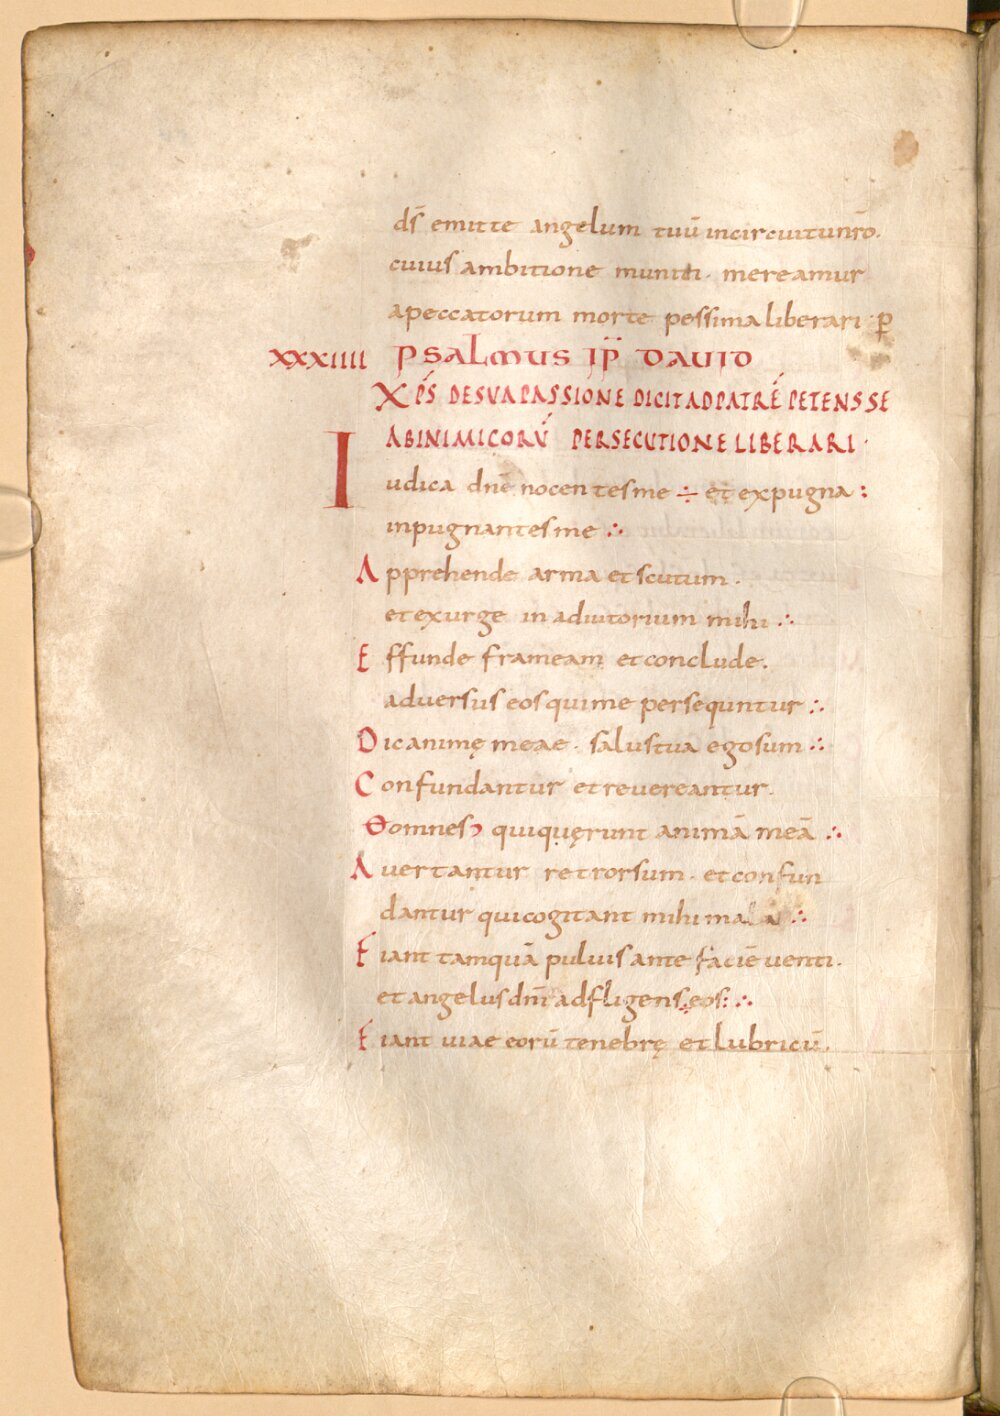 ds̄ emitte angelum tuū incircuitu nr̄o.
cuius ambitione muniti. mereamur
apeccatorum morte pessima liberari. ꝑ
XXXIIII PSALMUS IP̄ DAUID
XP̄S DESUAPASSIONE DICITADPATRĒ PETENSSE
ABINIMICORŪ PERSECUTIONE LIBERARI.
Iudica dnē nocentesme ÷ etexpugna :
inpugnantesme ∴
Apprehende arma etscutum.
etexurge in adiutorium mihi ∴
Effunde frameam etconclude.
aduersus eosquime persequntur ∴
Dicanimę meae. salustua egosum ∴
Confundantur etreuereantur.
omnes quiquęrunt animā meā ∴
Auertantur retrorsum. etconfun
dantur quicogitant mihi mala ∴
Fiant tamquā puluis ante faciē uenti.
etangelus dnī adfligens ÷ eos: ∴
Fiant uiae eorū tenebrę etlubricū.